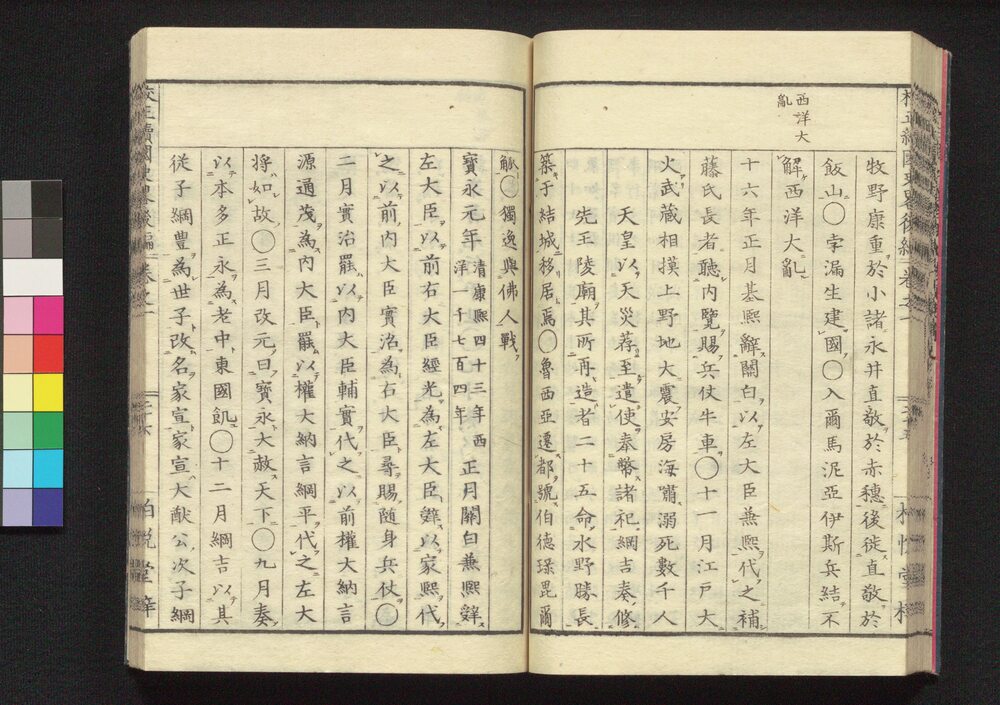 西洋大
亂
牧野康重於小諸永井直敬於赤穗後徙直敬於
飯山〇孛漏生建國〇入爾馬泥亞伊斯兵結不
解西洋大亂
十六年正月基熙辭關白以左大臣兼熙代之補
藤氏長者聽內覽賜兵仗牛車〇十一月江戶大
火武藏相摸上野地大震安房海嘯溺死數千人
天皇以天災荐至遣使奉幣諸祀綱吉奏修
先王陵廟其所再造者二十五命水野勝長
築于結城移居焉〇魯西亞遷都號伯德琭毘爾
觚〇獨逸與佛人戰
寶永元年清康熙四十三年西洋一千七百四年正月關白兼熙辤
左大臣以前右大臣經光為左大臣辤以家熙代
之以前內大臣實治為右大臣尋賜随身兵仗〇
二月實治罷以內大臣輔實代之以前權大納言
源通茂為內大臣罷以權大納言綱平代之左大
將如故〇三月改元曰寶永大赦天下〇九月奏
以本多正永為老中東國飢〇十二月綱吉以其
從子綱豊為世子改名家宣家宣大猷公次子綱
卷之一
二十六